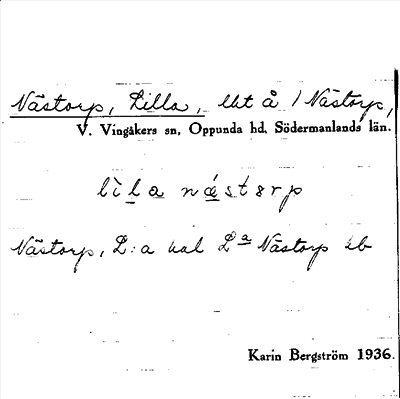 Nästorp, Lilla, lht å / Nästorp,
V. Vingåkers sn, Oppunda hd, Södermanlands län.
lìla nástorp
Nästorp, L:a kal Lª Nästorp eb
Karin Bergström 1936.